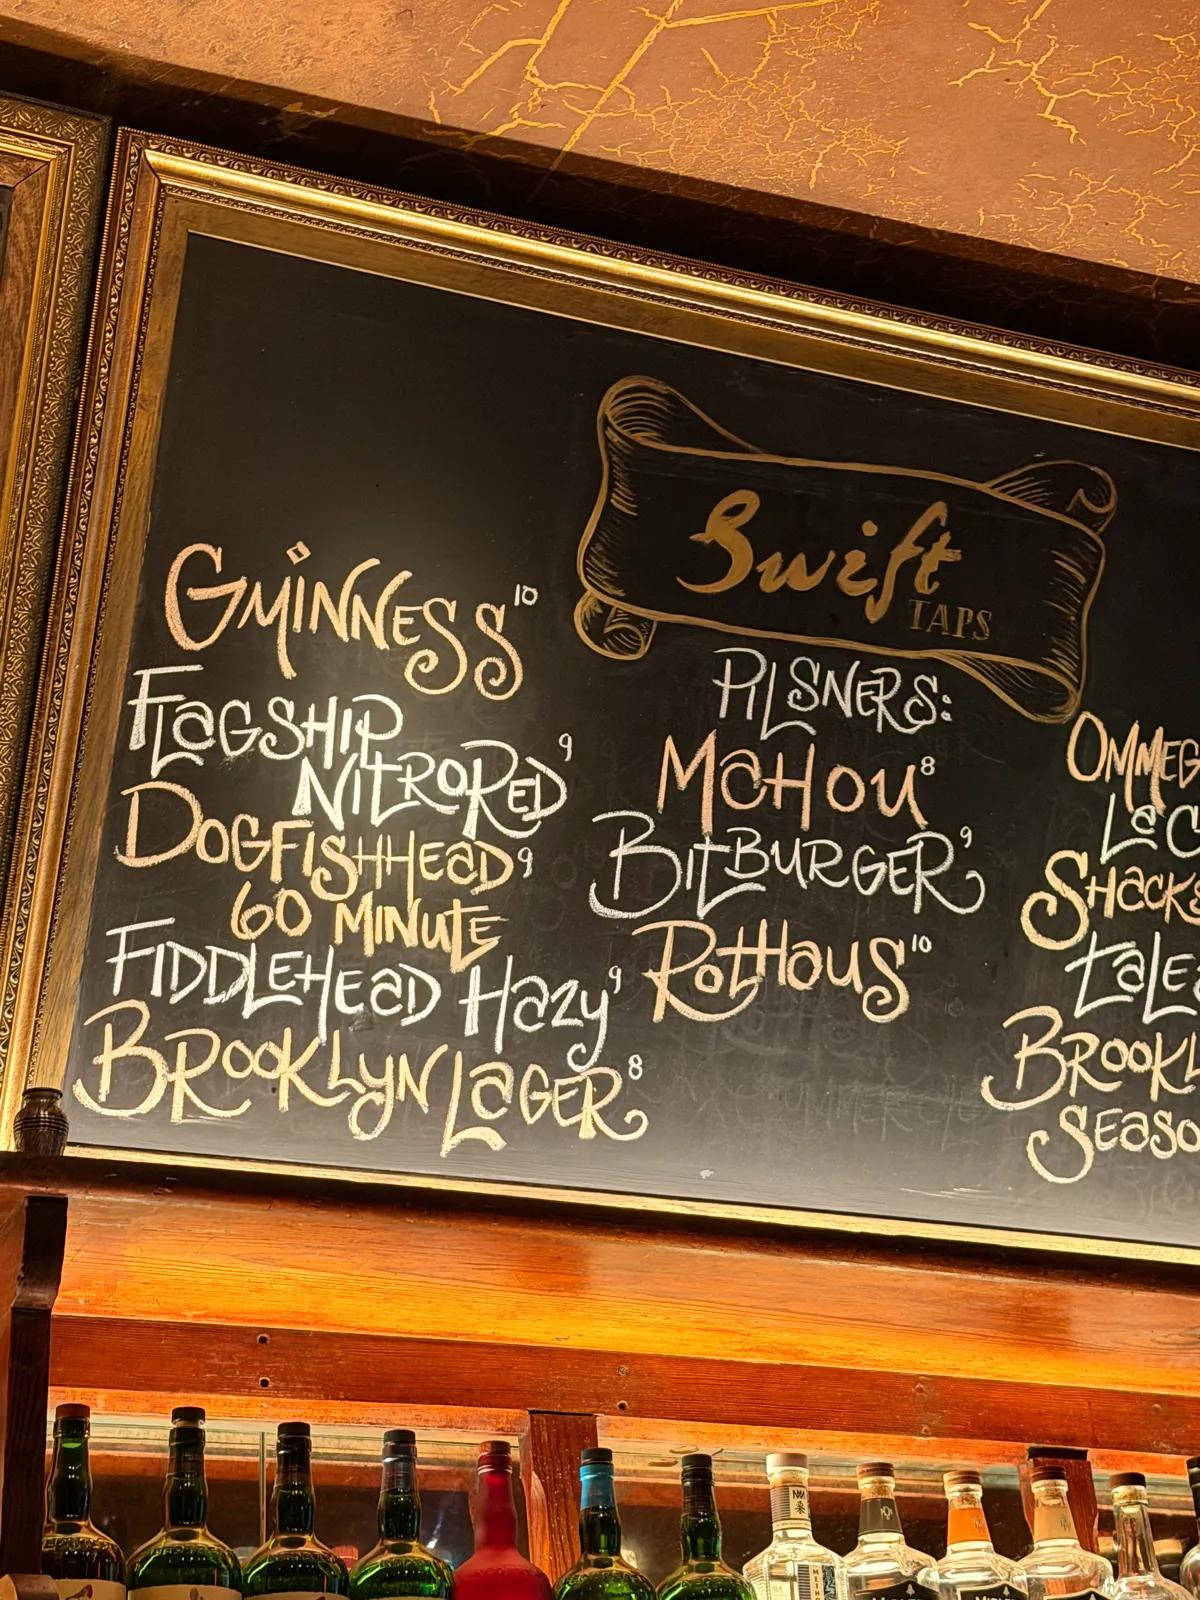 Swift
TAPS
GUINNESS 10
FLAGSHIP
NITRO RED 9
DOGFISHHEAD 9
60 MINUTE
FIDDLEHEAD HAZY 9
BROOKLYN LAGER 8
PILSNERS:
MAHOU 8
BITBURGER 9
ROTHAUS 10
OMMEG
SHACKS
TALE
BROOKL
SEASO